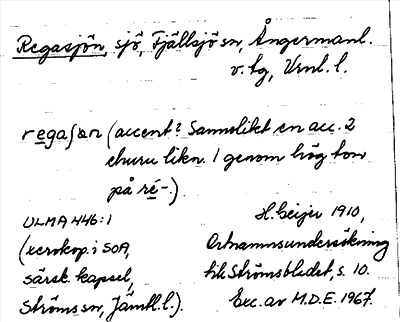 Regasjön, sjö, Fjällsjö sn, Ångermanl.
v. tg, Vrnl. l.
regaʃɷn (accent? Sannolikt en acc. 2
ehuru likn. 1 genom hög ton
på ré-.)
ULMA 446:1
(xerokop. i SOA,
särsk. kapsel,
Ströms sn, Jämtl. l.).
H. Geijer 1910,
Ortnamnsundersökning
till Strömsbladet, s. 10.
Exc. av M.D.E. 1967.